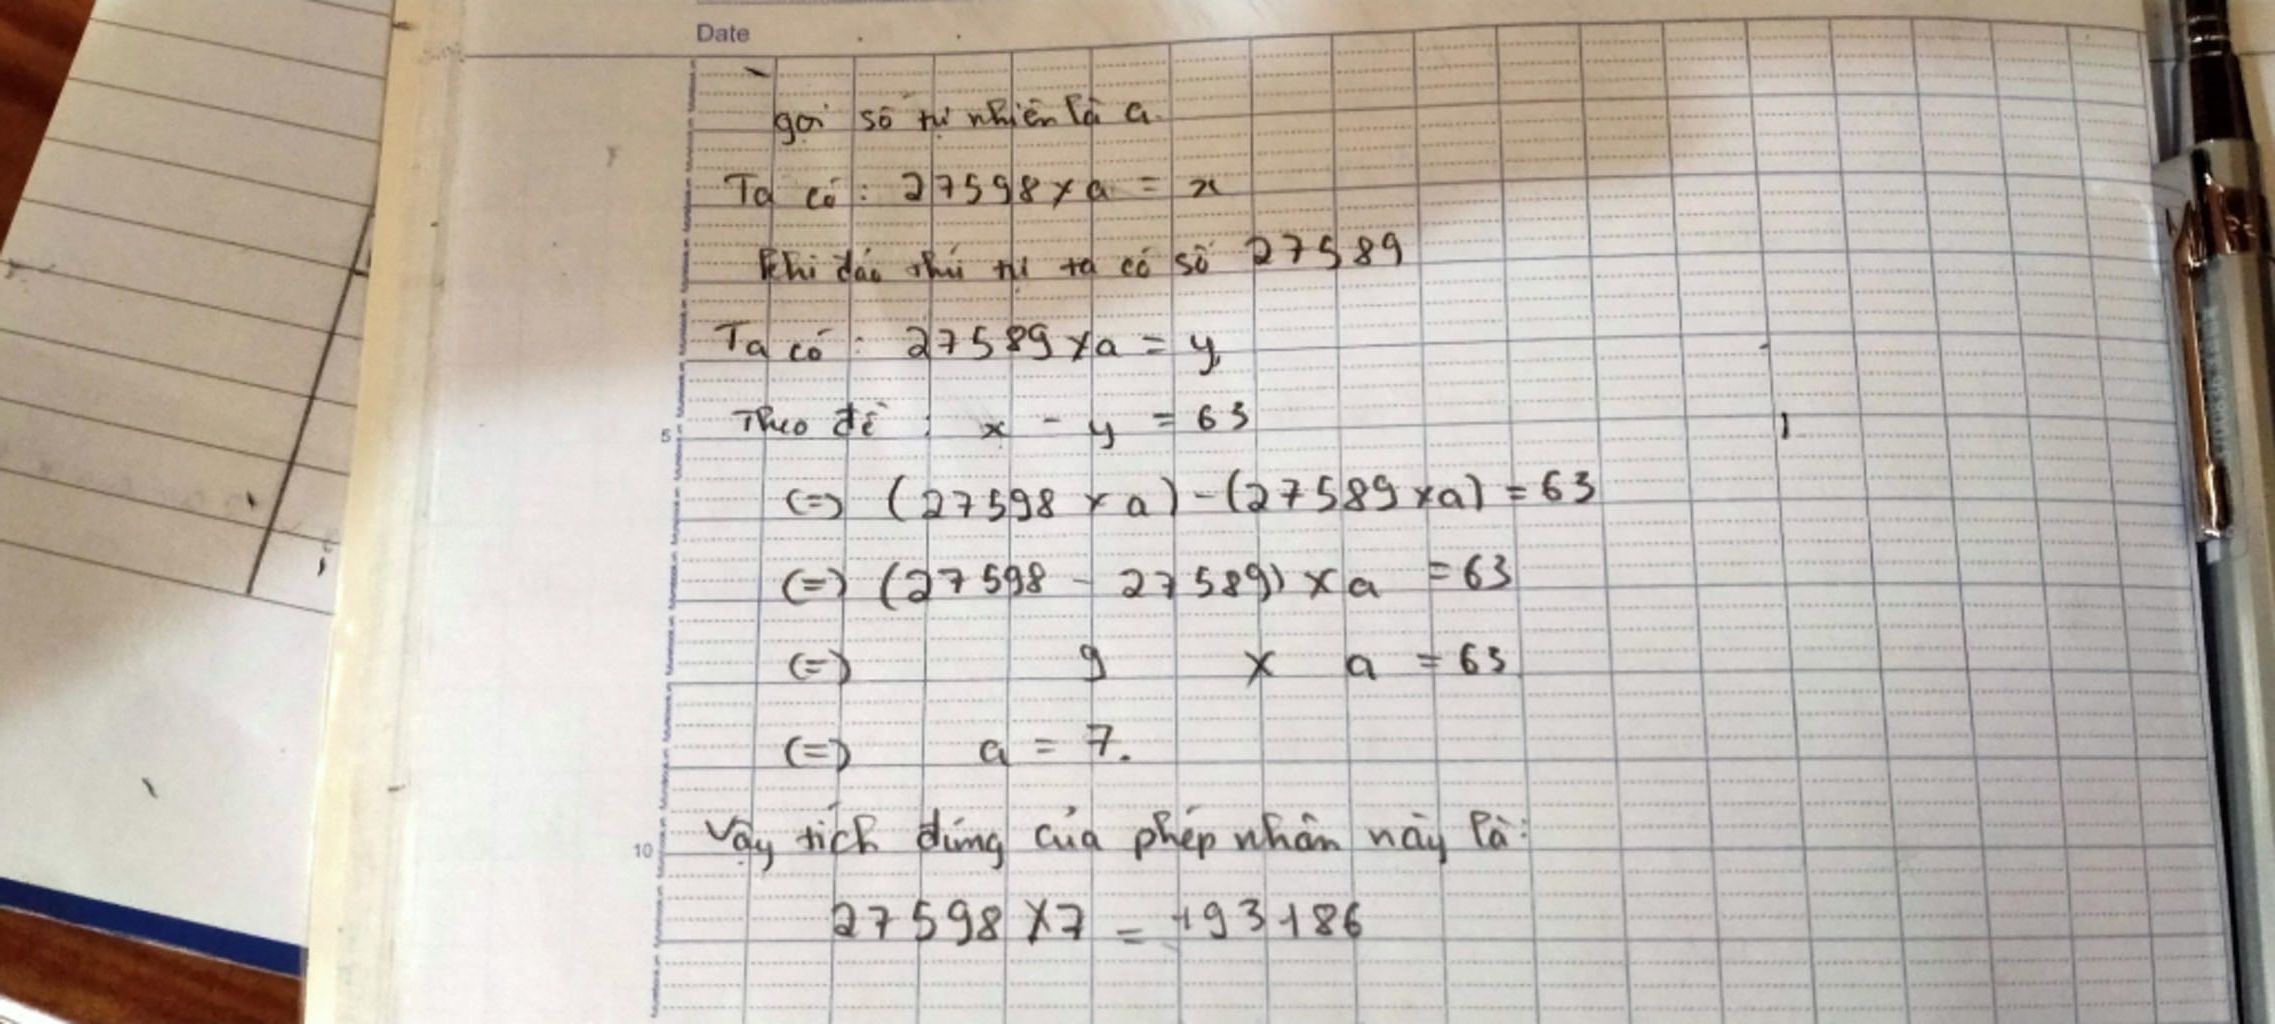 Date
gọi số tự nhiên là a.
Ta có: 27598 x a = x
Khi đảo thứ tự ta có số 27589
Ta có: 27589 x a = y
Theo đề: x - y = 63
5
(=) (27598 x a) - (27589 x a) = 63
(=) (27598 - 27589) x a = 63
(=) 9 x a = 63
(=) a = 7.
Vậy tích đúng của phép nhân này là:
10
27598 x 7 = 193186